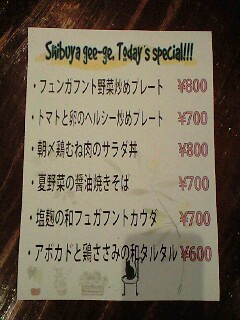 Shibuya gee-ge. Today's special!!!
・フュンガフント野菜炒めプレート ¥800
・トマトと卵のヘルシー炒めプレート ¥700
・朝〆鶏むね肉のサラダ丼 ¥800
・夏野菜の醤油焼きそば ¥700
・塩麹の和フュガフントカウダ ¥700
・アボカドと鶏ささみの和タルタル ¥600